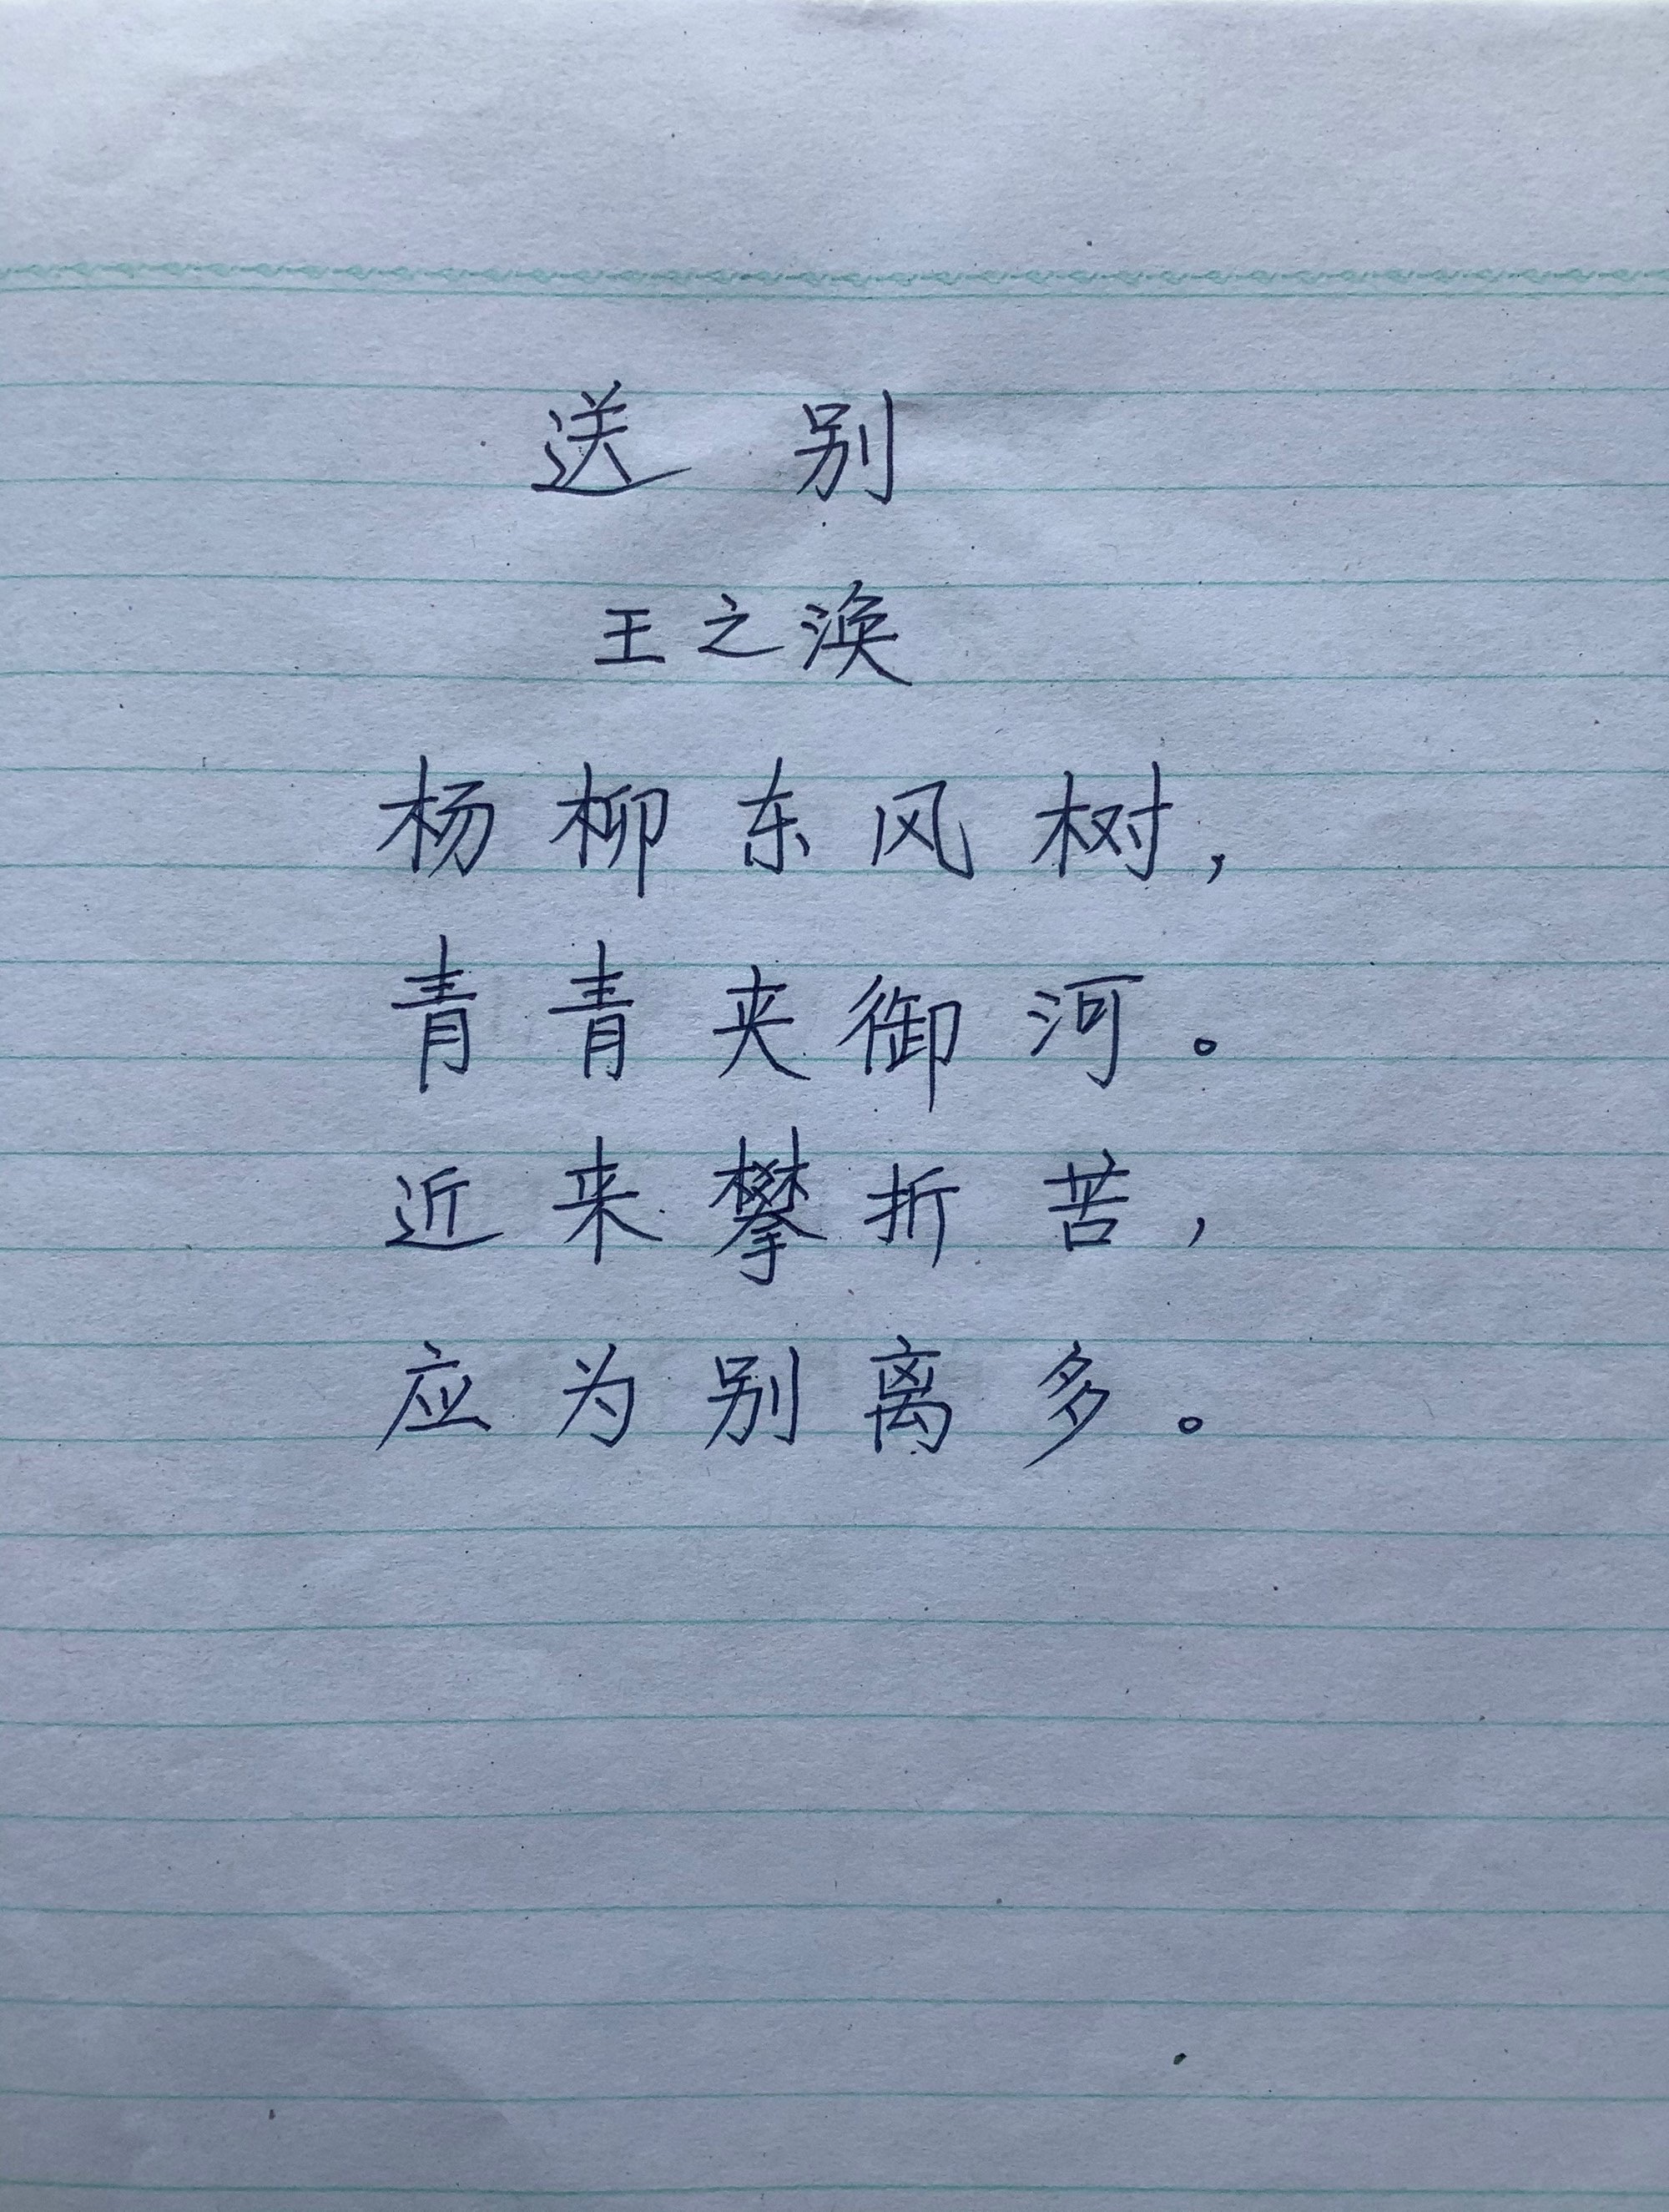 送别
王之涣
杨柳东风树，
青青夹御河。
近来攀折苦，
应为别离多。